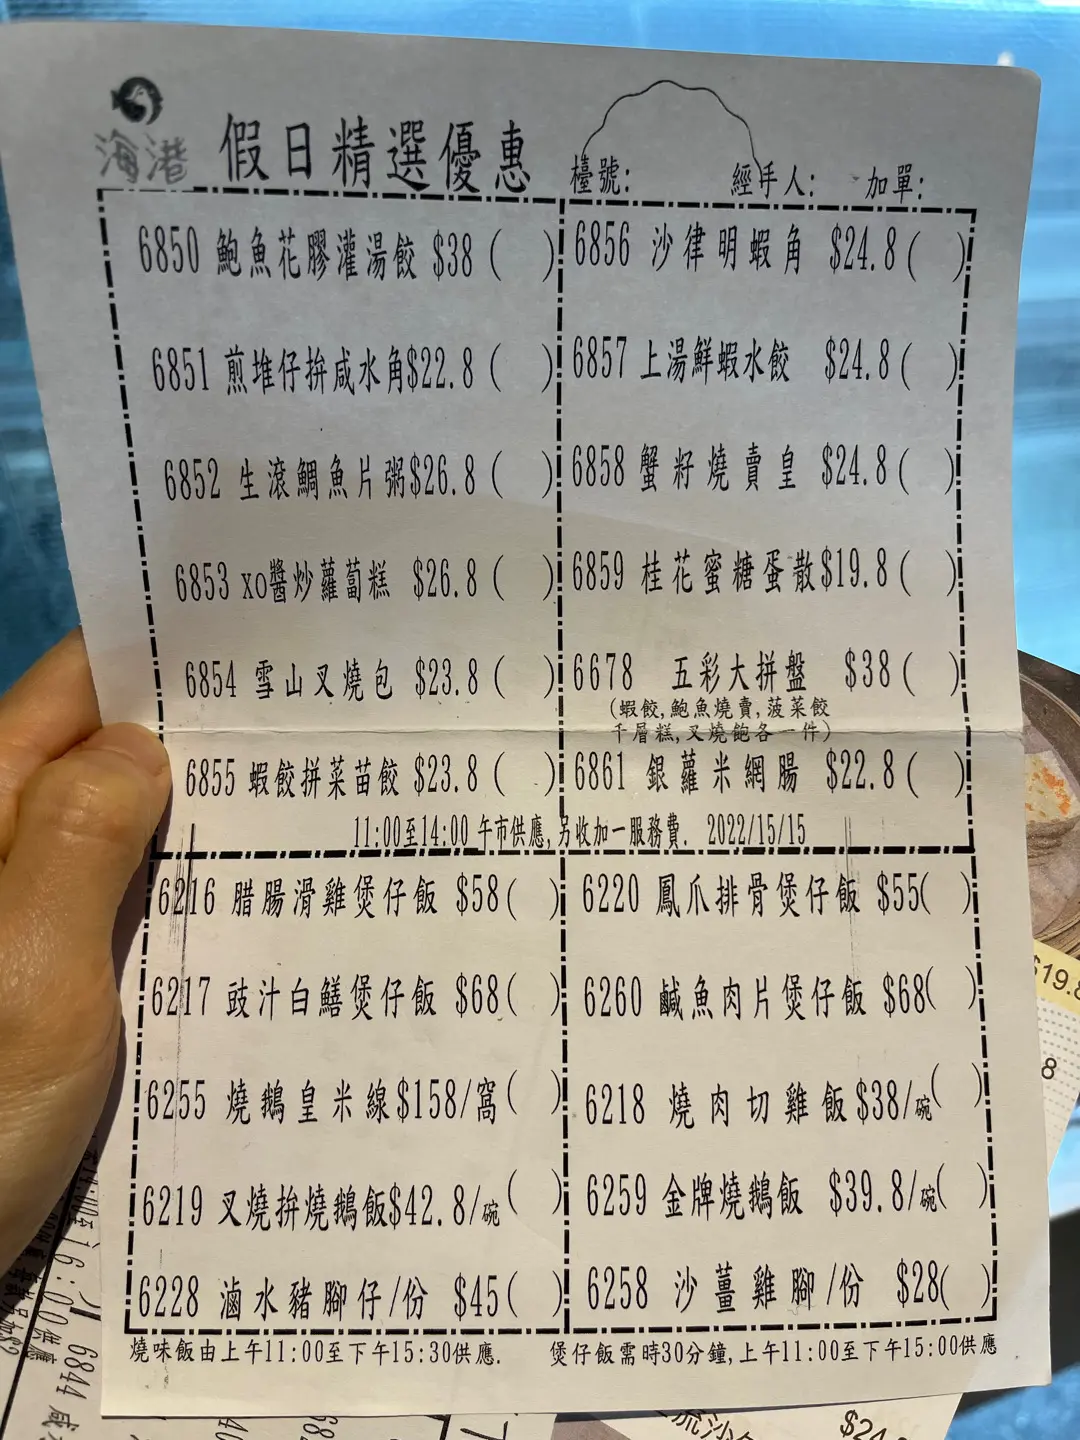 海港 假日精選優惠 檯號: 經手人: 加單:
6850 鮑魚花膠灌湯餃 $38 ( )
6851 煎堆仔拚咸水角$22.8 ( )
6852 生滾鯛魚片粥$26.8 ( )
6853 xo醬炒蘿蔔糕 $26.8 ( )
6854 雪山叉燒包 $23.8 ( )
6855 蝦餃拼菜苗餃 $23.8 ( )
6856 沙律明蝦角 $24.8 ( )
6857 上湯鮮蝦水餃 $24.8 ( )
6858 蟹籽燒賣皇 $24.8 ( )
6859 桂花蜜糖蛋散$19.8 ( )
6678 五彩大拼盤 $38 ( )
(蝦餃,鮑魚燒賣,菠菜餃
千層糕,叉燒飽各一件)
6861 銀蘿米網腸 $22.8 ( )
11:00至14:00 午市供應,另收加一服務費. 2022/15/15
6216 腊腸滑雞煲仔飯 $58 ( )
6217 豉汁白鱔煲仔飯 $68 ( )
6255 燒鵝皇米線$158/窩 ( )
6219 叉燒拚燒鵝飯$42.8/碗 ( )
6228 滷水豬腳仔/份 $45 ( )
6220 鳳爪排骨煲仔飯 $55( )
6260 鹹魚肉片煲仔飯 $68( )
6218 燒肉切雞飯$38/碗( )
6259 金牌燒鵝飯 $39.8/碗( )
6258 沙薑雞腳/份 $28( )
燒味飯由上午11:00至下午15:30供應. 煲仔飯需時30分鐘,上午11:00至下午15:00供應
$19.8
8
16:00供應
6844 咸
流沙
$24